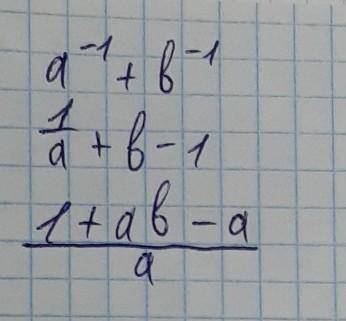 a⁻¹ + b⁻¹
1/a + b - 1
(1 + ab - a)/a